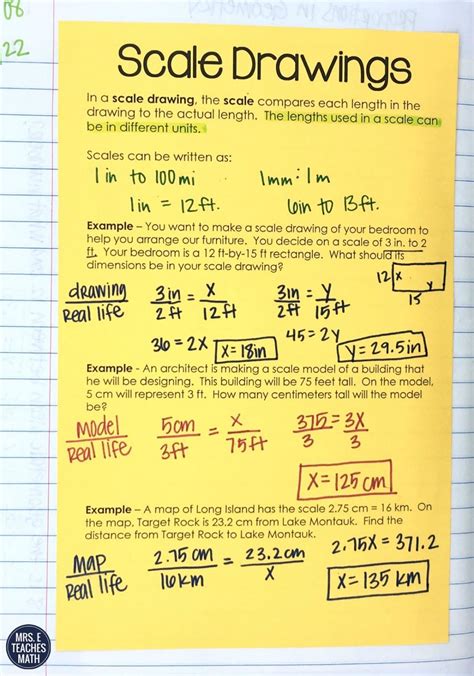 08
22
Scale Drawings
In a scale drawing, the scale compares each length in the
drawing to the actual length. The lengths used in a scale can
be in different units.
Scales can be written as:
1 in to 100 mi 1mm : 1m
1in = 12ft. 6in to 13ft.
Example – You want to make a scale drawing of your bedroom to
help you arrange our furniture. You decide on a scale of 3 in. to 2
ft. Your bedroom is a 12 ft-by-15 ft rectangle. What should its
dimensions be in your scale drawing?
12 x y 15
drawing/Real life 3in/2ft = x/12ft 3in/2ft = y/15ft
36 = 2x x = 18in 45 = 2y y = 29.5in
Example - An architect is making a scale model of a building that
he will be designing. This building will be 75 feet tall. On the model,
5 cm will represent 3 ft. How many centimeters tall will the model
be?
Model/Real life 5cm/3ft = x/75ft 375/3 = 3x/3
x = 125 cm
Example – A map of Long Island has the scale 2.75 cm = 16 km. On
the map, Target Rock is 23.2 cm from Lake Montauk. Find the
distance from Target Rock to Lake Montauk.
Map/Real life 2.75 cm/16km = 23.2cm/x 2.75x = 371.2
x = 135 km
MRS. E
TEACHES
MATH